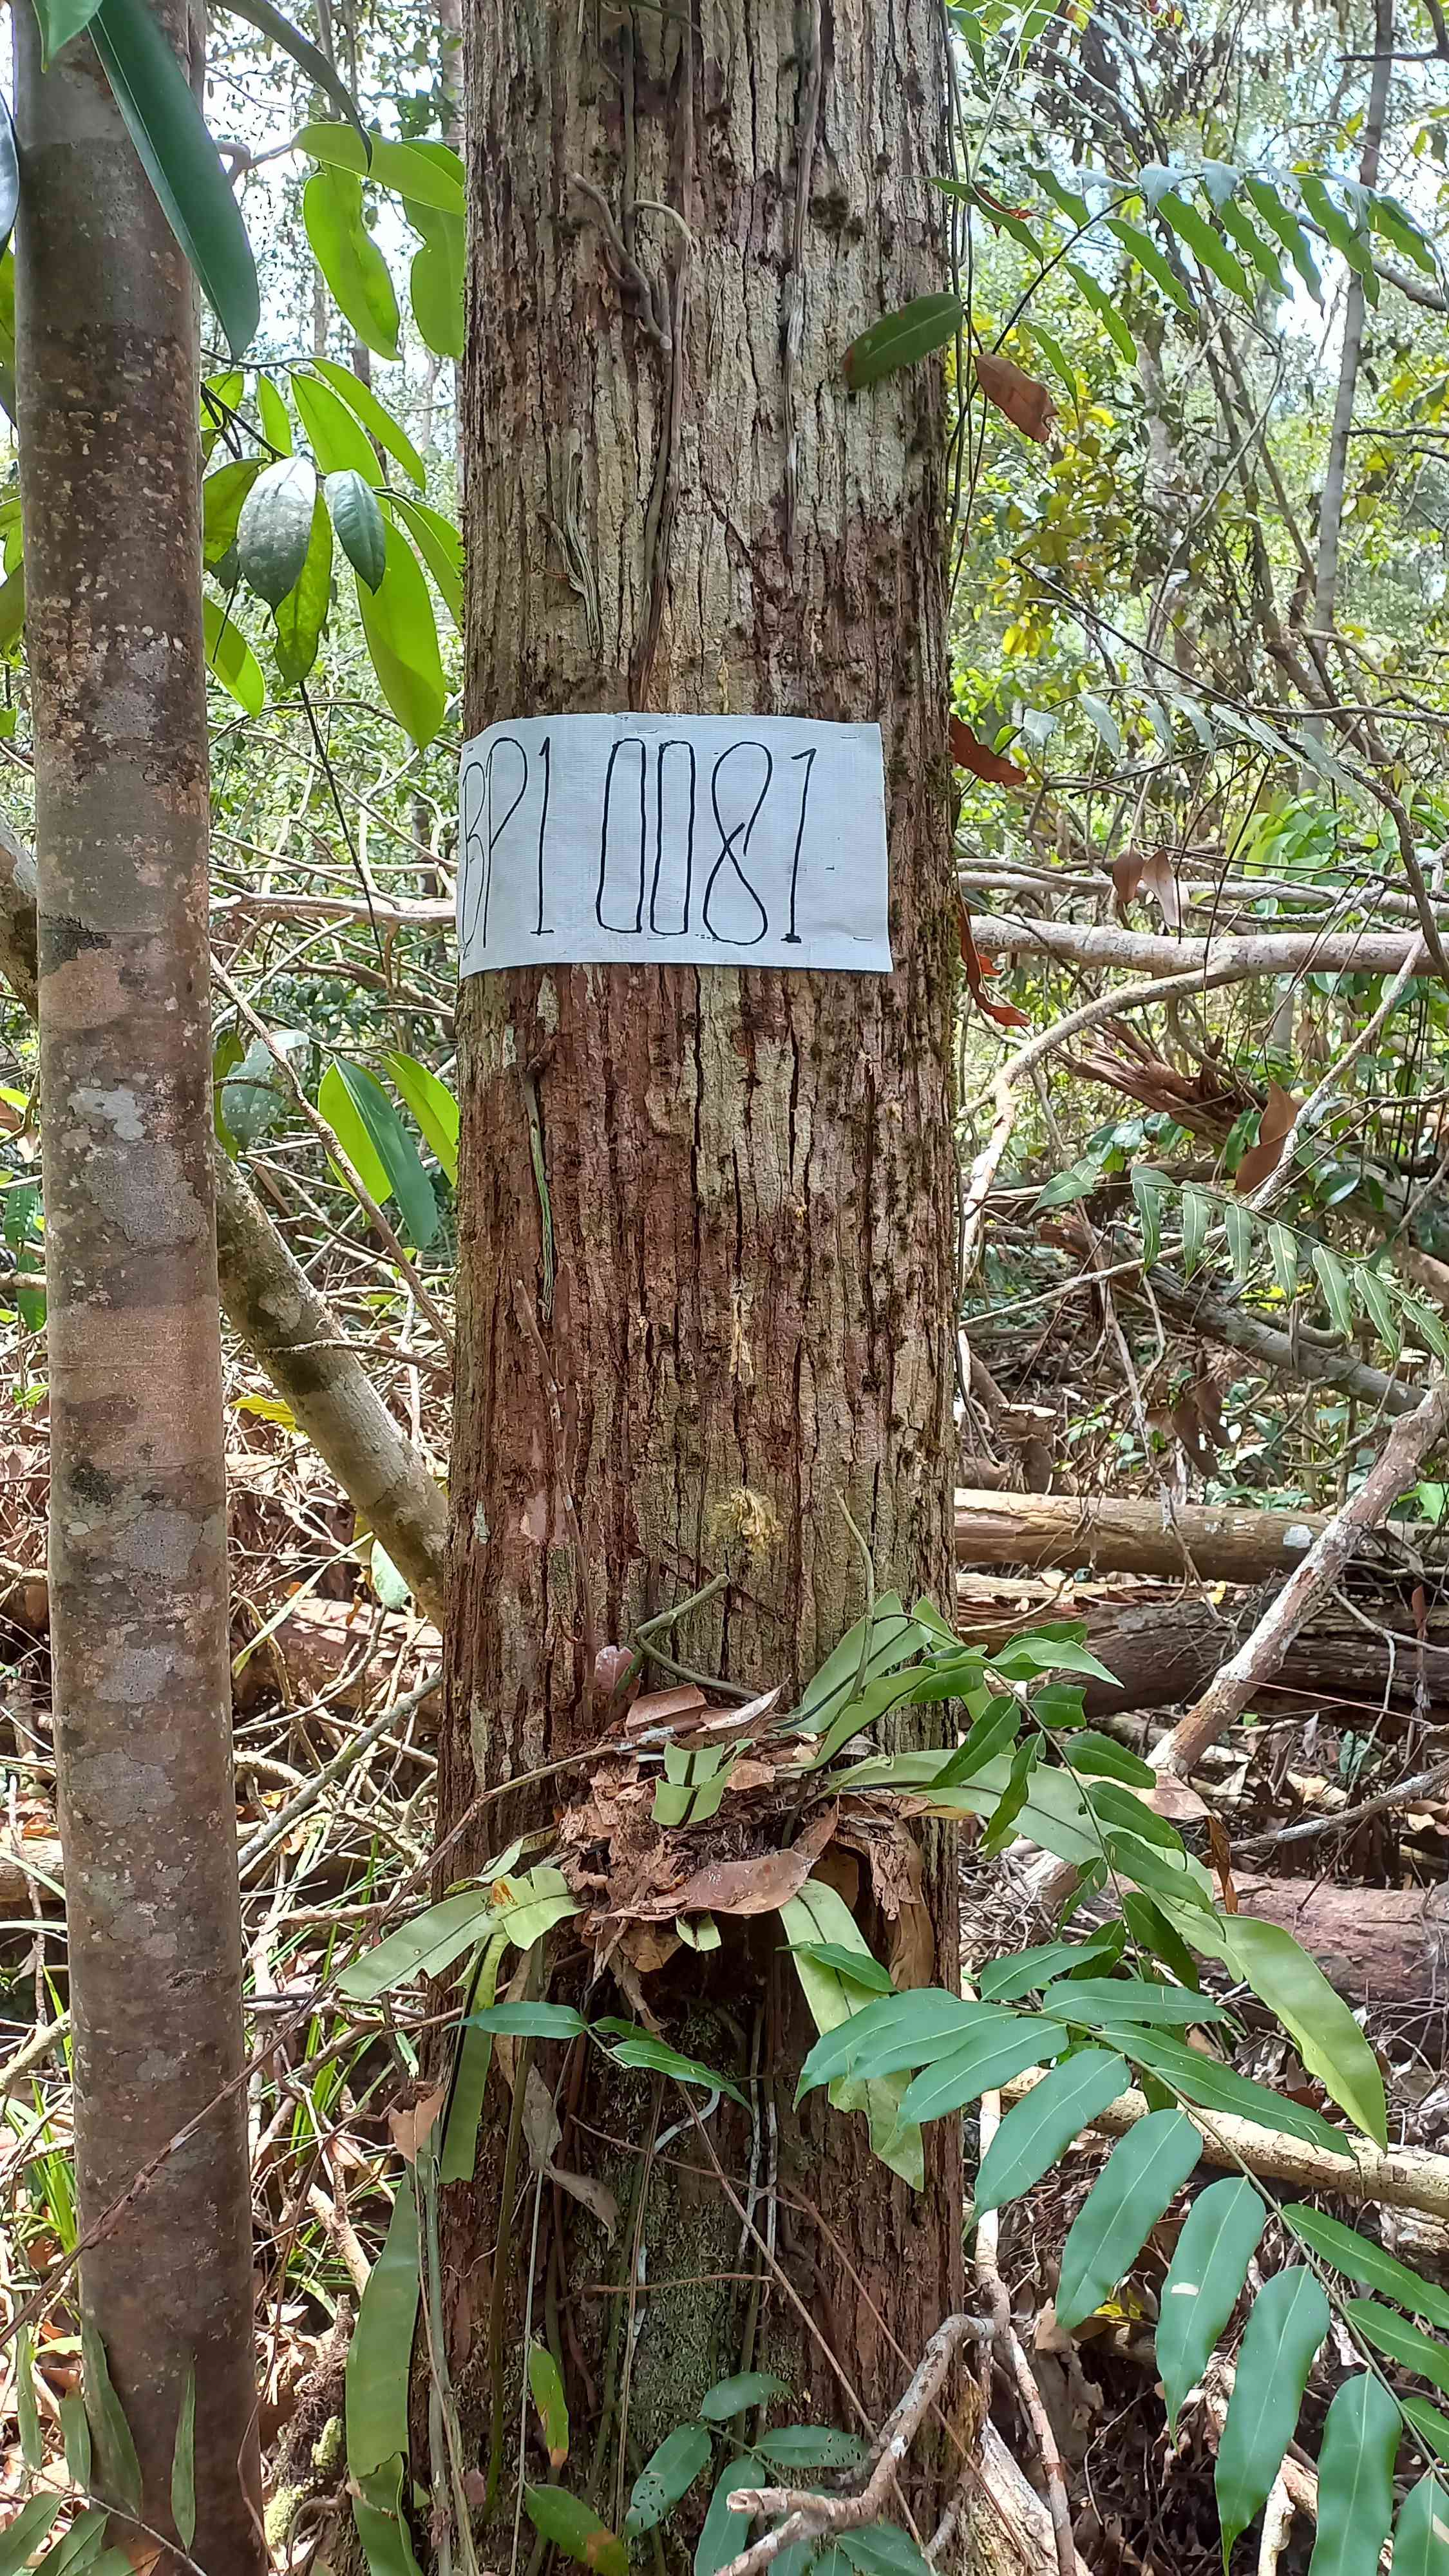 BP1 0081